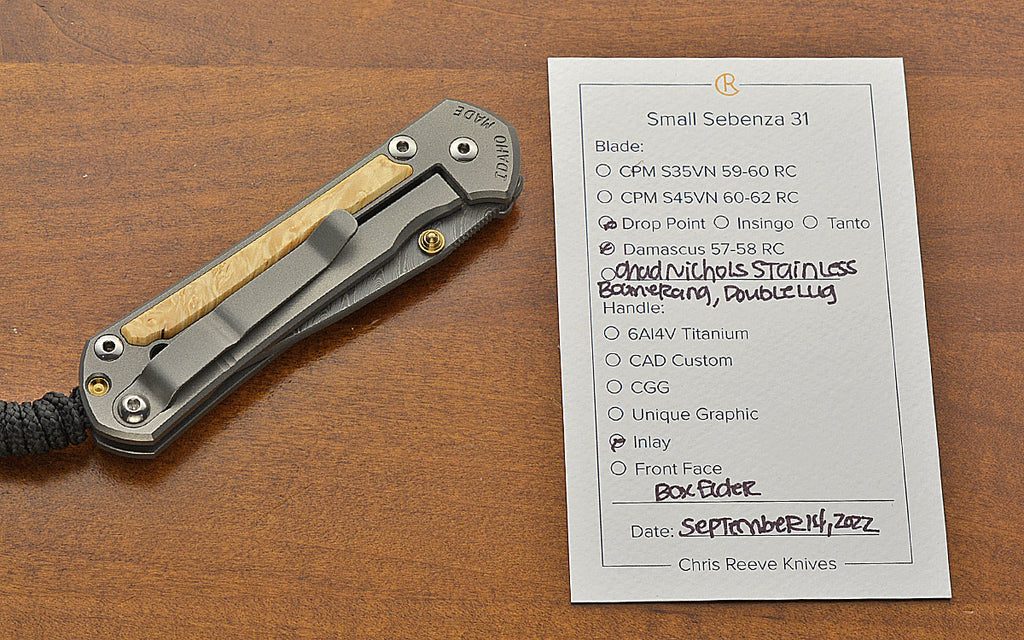 MADE
IDAHO
CR
Small Sebenza 31
Blade:
CPM S35VN 59-60 RC
CPM S45VN 60-62 RC
Drop Point Insingo Tanto
Damascus 57-58 RC
Chad Nichols Stainless
Boomerang, Double Lug
Handle:
6Al4V Titanium
CAD Custom
CGG
Unique Graphic
Inlay
Front Face
Box Elder
Date: September 14, 2022
Chris Reeve Knives